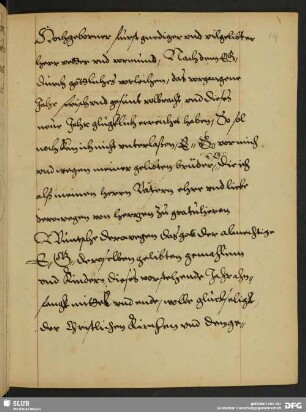 Hochgeborner fürst gnediger und vilgelibter
herr vetter und vormund, Nachdem E G
durch götliches vorleihen, das vorgangene
Jahr frisch und gesunt volbracht und dieses
neue Jahr glücklich erreichet haben, So
noch kan ich nicht unterlassen, E G vor mich
und wegen meiner gelibten brüder, die ich
als meinen herrn Vatern ehre und liebe
derowegen von herzen zu gratuliren
Wünsche derowegen das got der almechtige
E G, deroselben gelibten gemahlinn
und Kindern, dieses vorstehende Jahr ahn-
fangk mittel und ende, wolle glückseligst
der Christlichen Kirchen und
SLUB
DFG